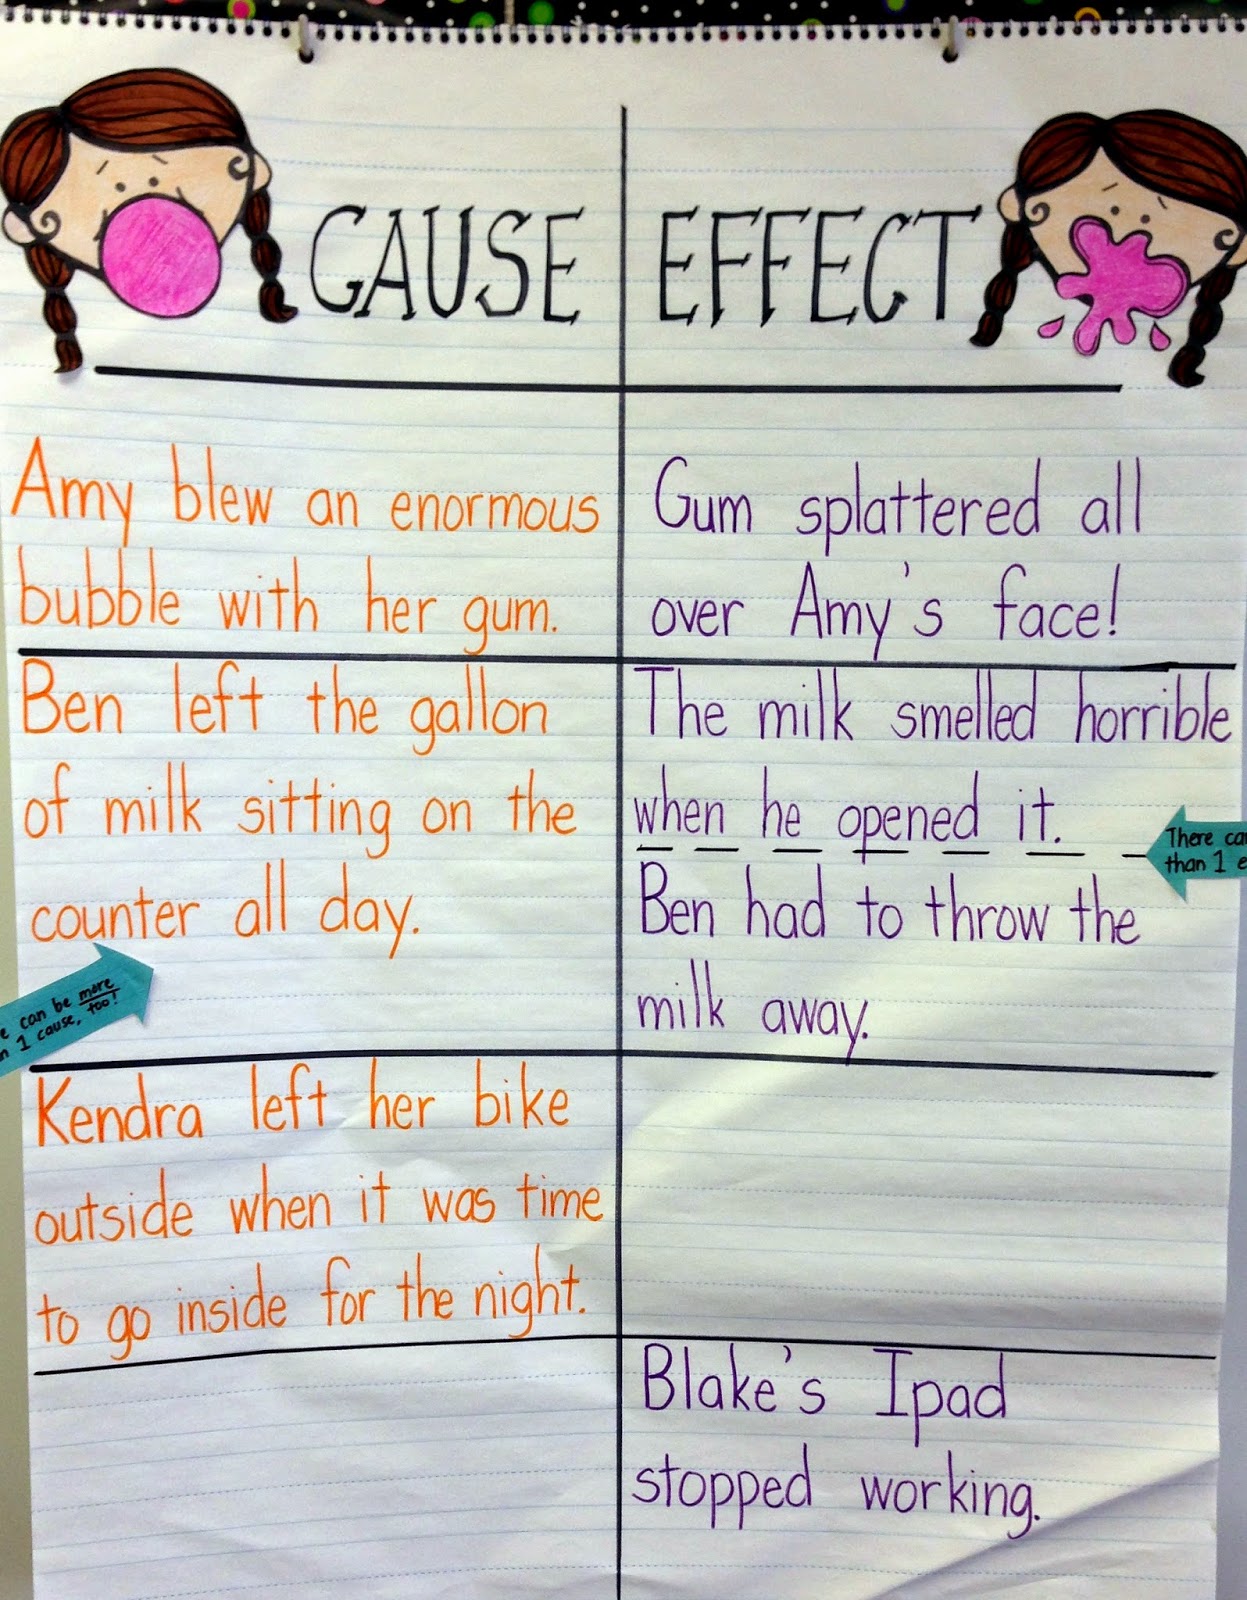 CAUSE
EFFECT
Amy blew an enormous
bubble with her gum.
Gum splattered all
over Amy's face!
Ben left the gallon
of milk sitting on the
counter all day.
The milk smelled horrible
when he opened it.
Ben had to throw the
milk away.
There
than 1
can be more
1 cause, too!
Kendra left her bike
outside when it was time
to go inside for the night.
Blake's Ipad
stopped working.